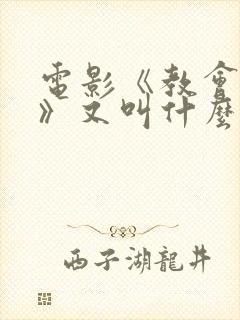 電影《教會
》又叫什麼
西子湖龍井